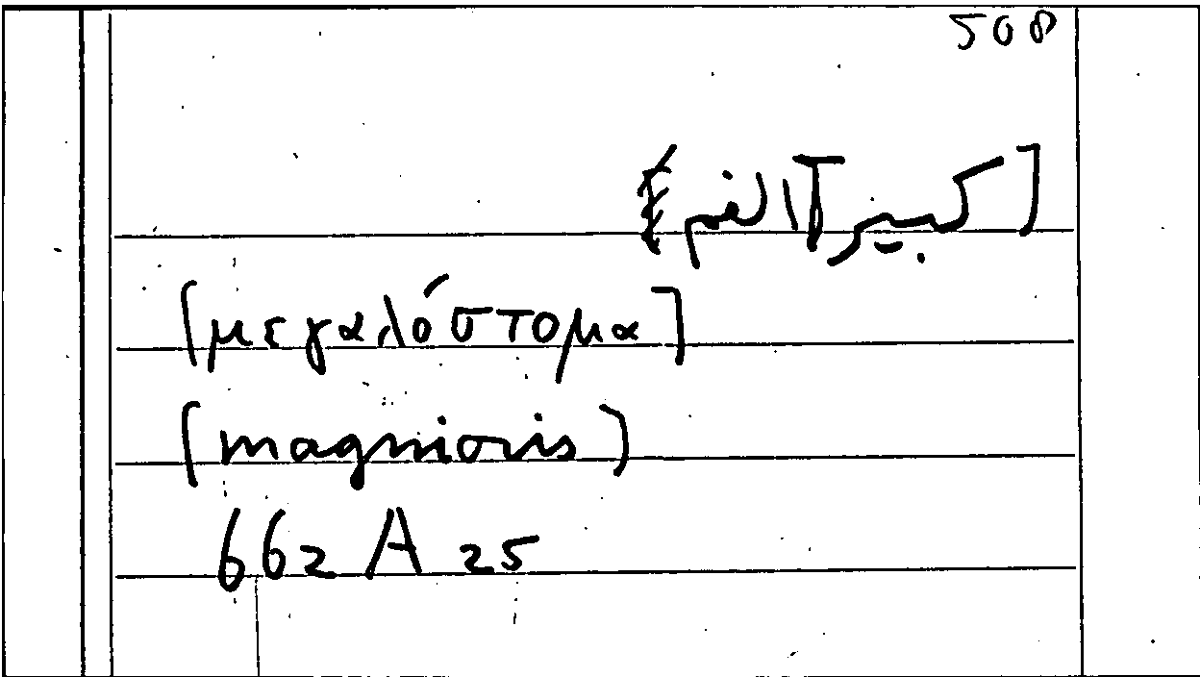 508
[كبير الفم]
[μεγαλόστομα]
[magnioris]
662 A 25